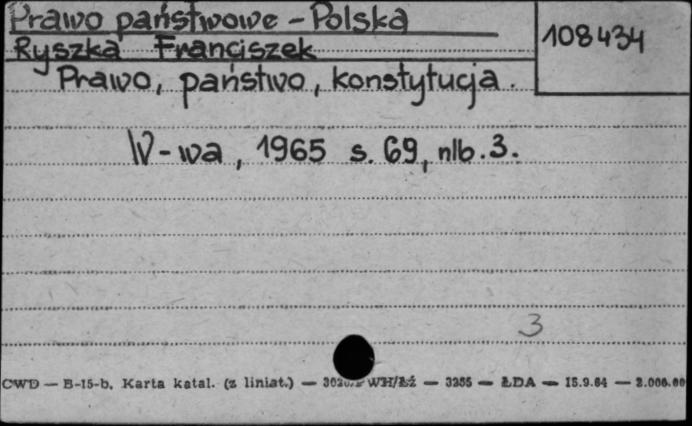 Prawo państwowe - Polska
108434
Ryszka Franciszek
Prawo, państwo, konstytucja.
W-wa, 1965 s. 69, nlb. 3.
3
CWD — B-15-b. Karta katal. (z liniat.) — WH/Łź — 3255 — ŁDA — 15.9.64 — 2.000.00